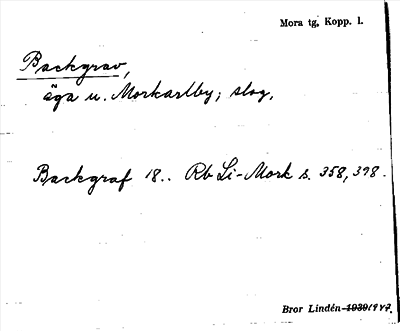 Mora tg, Kopp. l.
Backgrav,
äga u. Morkarlby; slog.
Backgraf 18.. Rb Li-Mork s. 358, 398.
Bror Lindén 1939 1947.